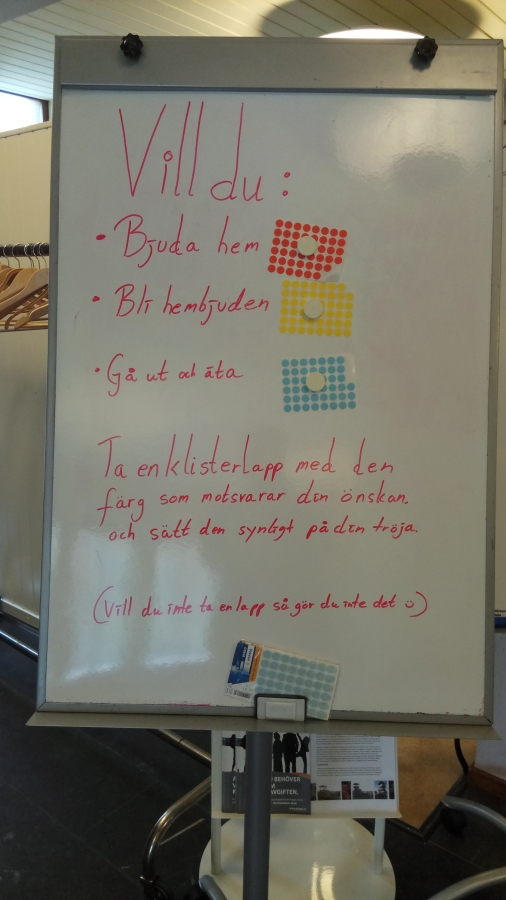 Vill du:
• Bjuda hem
• Bli hembjuden
• Gå ut och äta
Ta en klisterlapp med den
färg som motsvarar din önskan.
och sätt den synligt på din tröja.
(Vill du inte ta en lapp så gör du inte det ☺)
BEHÖVER
AVGIFTEN.